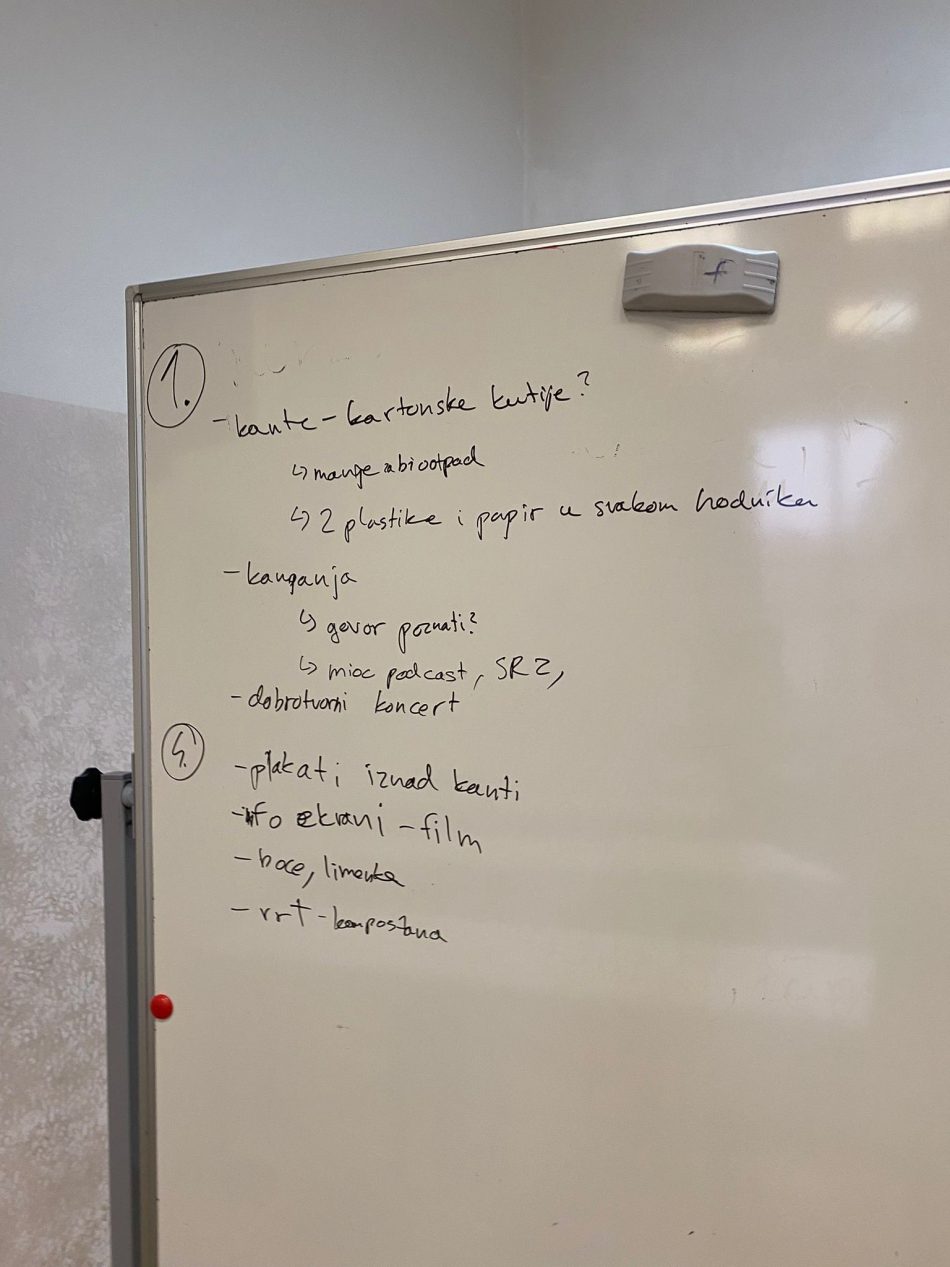 1.
- kante - kartonske kutije?
↳ manje za biootpad
↳ 2 plastike i papir u svakom hodniku
- kampanja
↳ govor poznati?
↳ mioc podcast, SRZ,
- dobrotvorni koncert
- plakati iznad kanti
- info ekrani - film
- boce, limenke
- vrt - kompostana
f